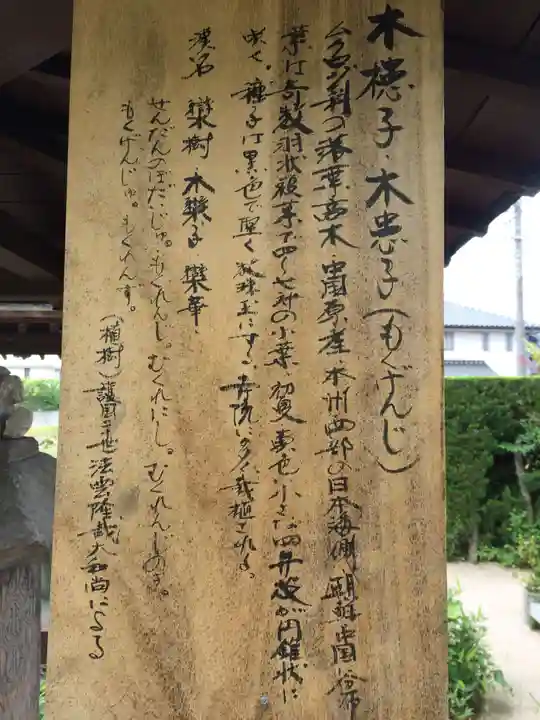 木槵子・木患子(もくげんじ)
ムクロジ科の落葉高木・中国原産 本州西部の日本海側、朝鮮中国分布
葉は奇数羽状複葉で四〜七対の小葉 初夏 黄色 小さな四弁花が円錐状に
咲せ。種子は黒色で堅く数珠玉にする、寺院に多く栽植される。
漢名 欒樹・木欒子 欒華
せんだんのぼだいじゅ。もくれんじ。むくれにし。むくれんじのき。
もくげんじゅ。もくげんず。
(植樹)護国寺 世 法雲 哉大和尚による